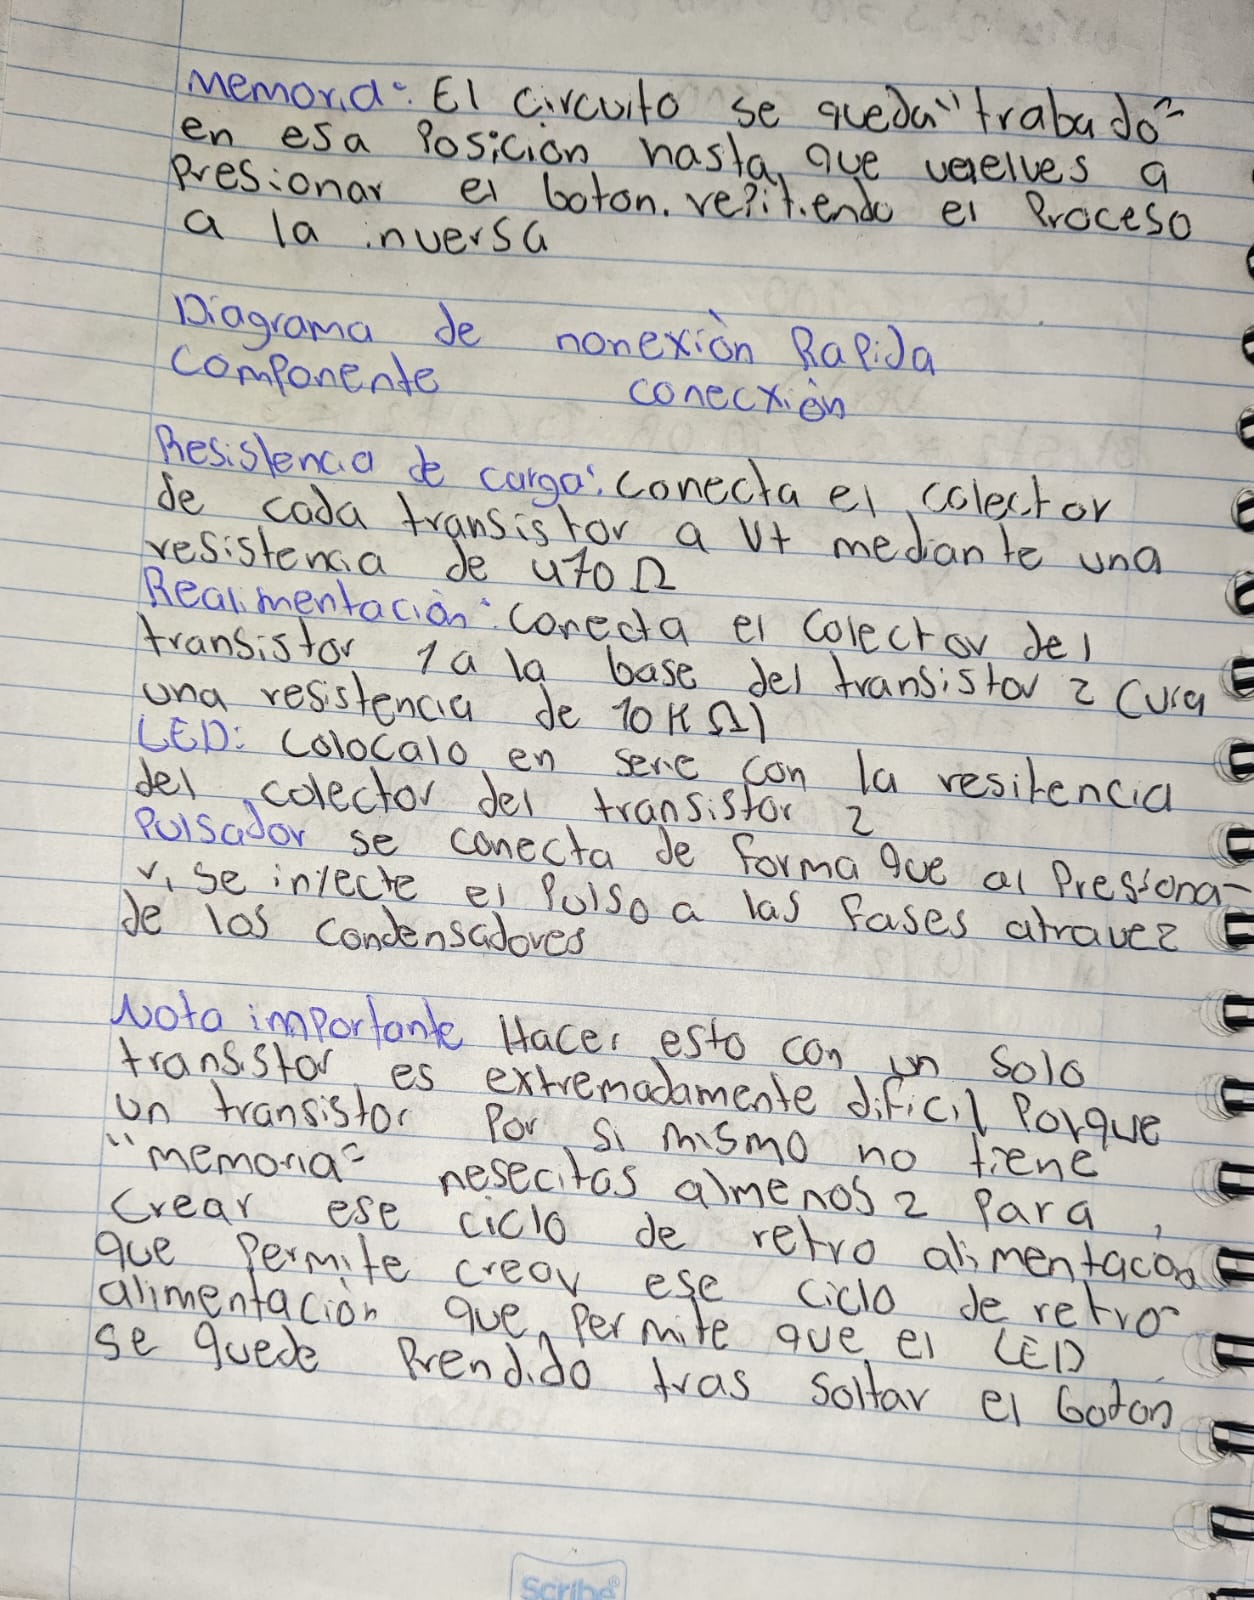 Memoria: El circuito se queda "trabado"
en esa Posición hasta que vuelves a
Presionar el boton. repitiendo el Proceso
a la inversa
Diagrama de nonexión Rapida
Componente conecxión
Resistencia de carga: Conecta el colector
de cada transistor a V+ mediante una
resistencia de 470 Ω
Realimentación: Conecta el Colector del
transistor 1 a la base del transistor 2 (
una resistencia de 10KΩ)
LED: Colocalo en serie con la resitencia
del colector del transistor 2
Pulsador se conecta de forma que al Presiona-
r, se inyecte el Pulso a las fases atravez
de los condensadores
Nota importante Hacer esto con un Solo
transistor es extremadamente dificil Porque
un transistor Por si mismo no tiene
"memoria" nesecitas almenos 2 Para,
Crear ese ciclo de retro alimentación
que Permite crear ese ciclo de retro-
alimentación que Permite que el LED
se quede Prendido tras soltar el boton
Scribe®